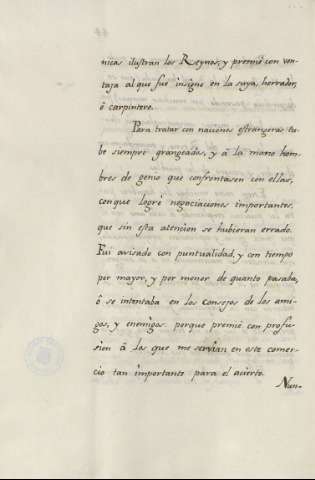 nicas ilustran los Reynos, y premié con ven-
taja al que fue insigne en la suya, herrador,
ó carpintero.
Para tratar con naciones estrangeras tu-
be siempre grangeados, y á la mano hom-
bres de genio que confrontasen con ellas,
conque logré negociaciones importantes,
que sin esta atencion se hubieran errado.
Fui avisado con puntualidad, y con tiempo
por mayor, y por menor de quanto pasaba,
ó se intentaba en los consejos de los ami-
gos, y enemigos porque premié con profu-
sion á los que me servian en este comer-
cio tan importante para el acierto.
Nun-